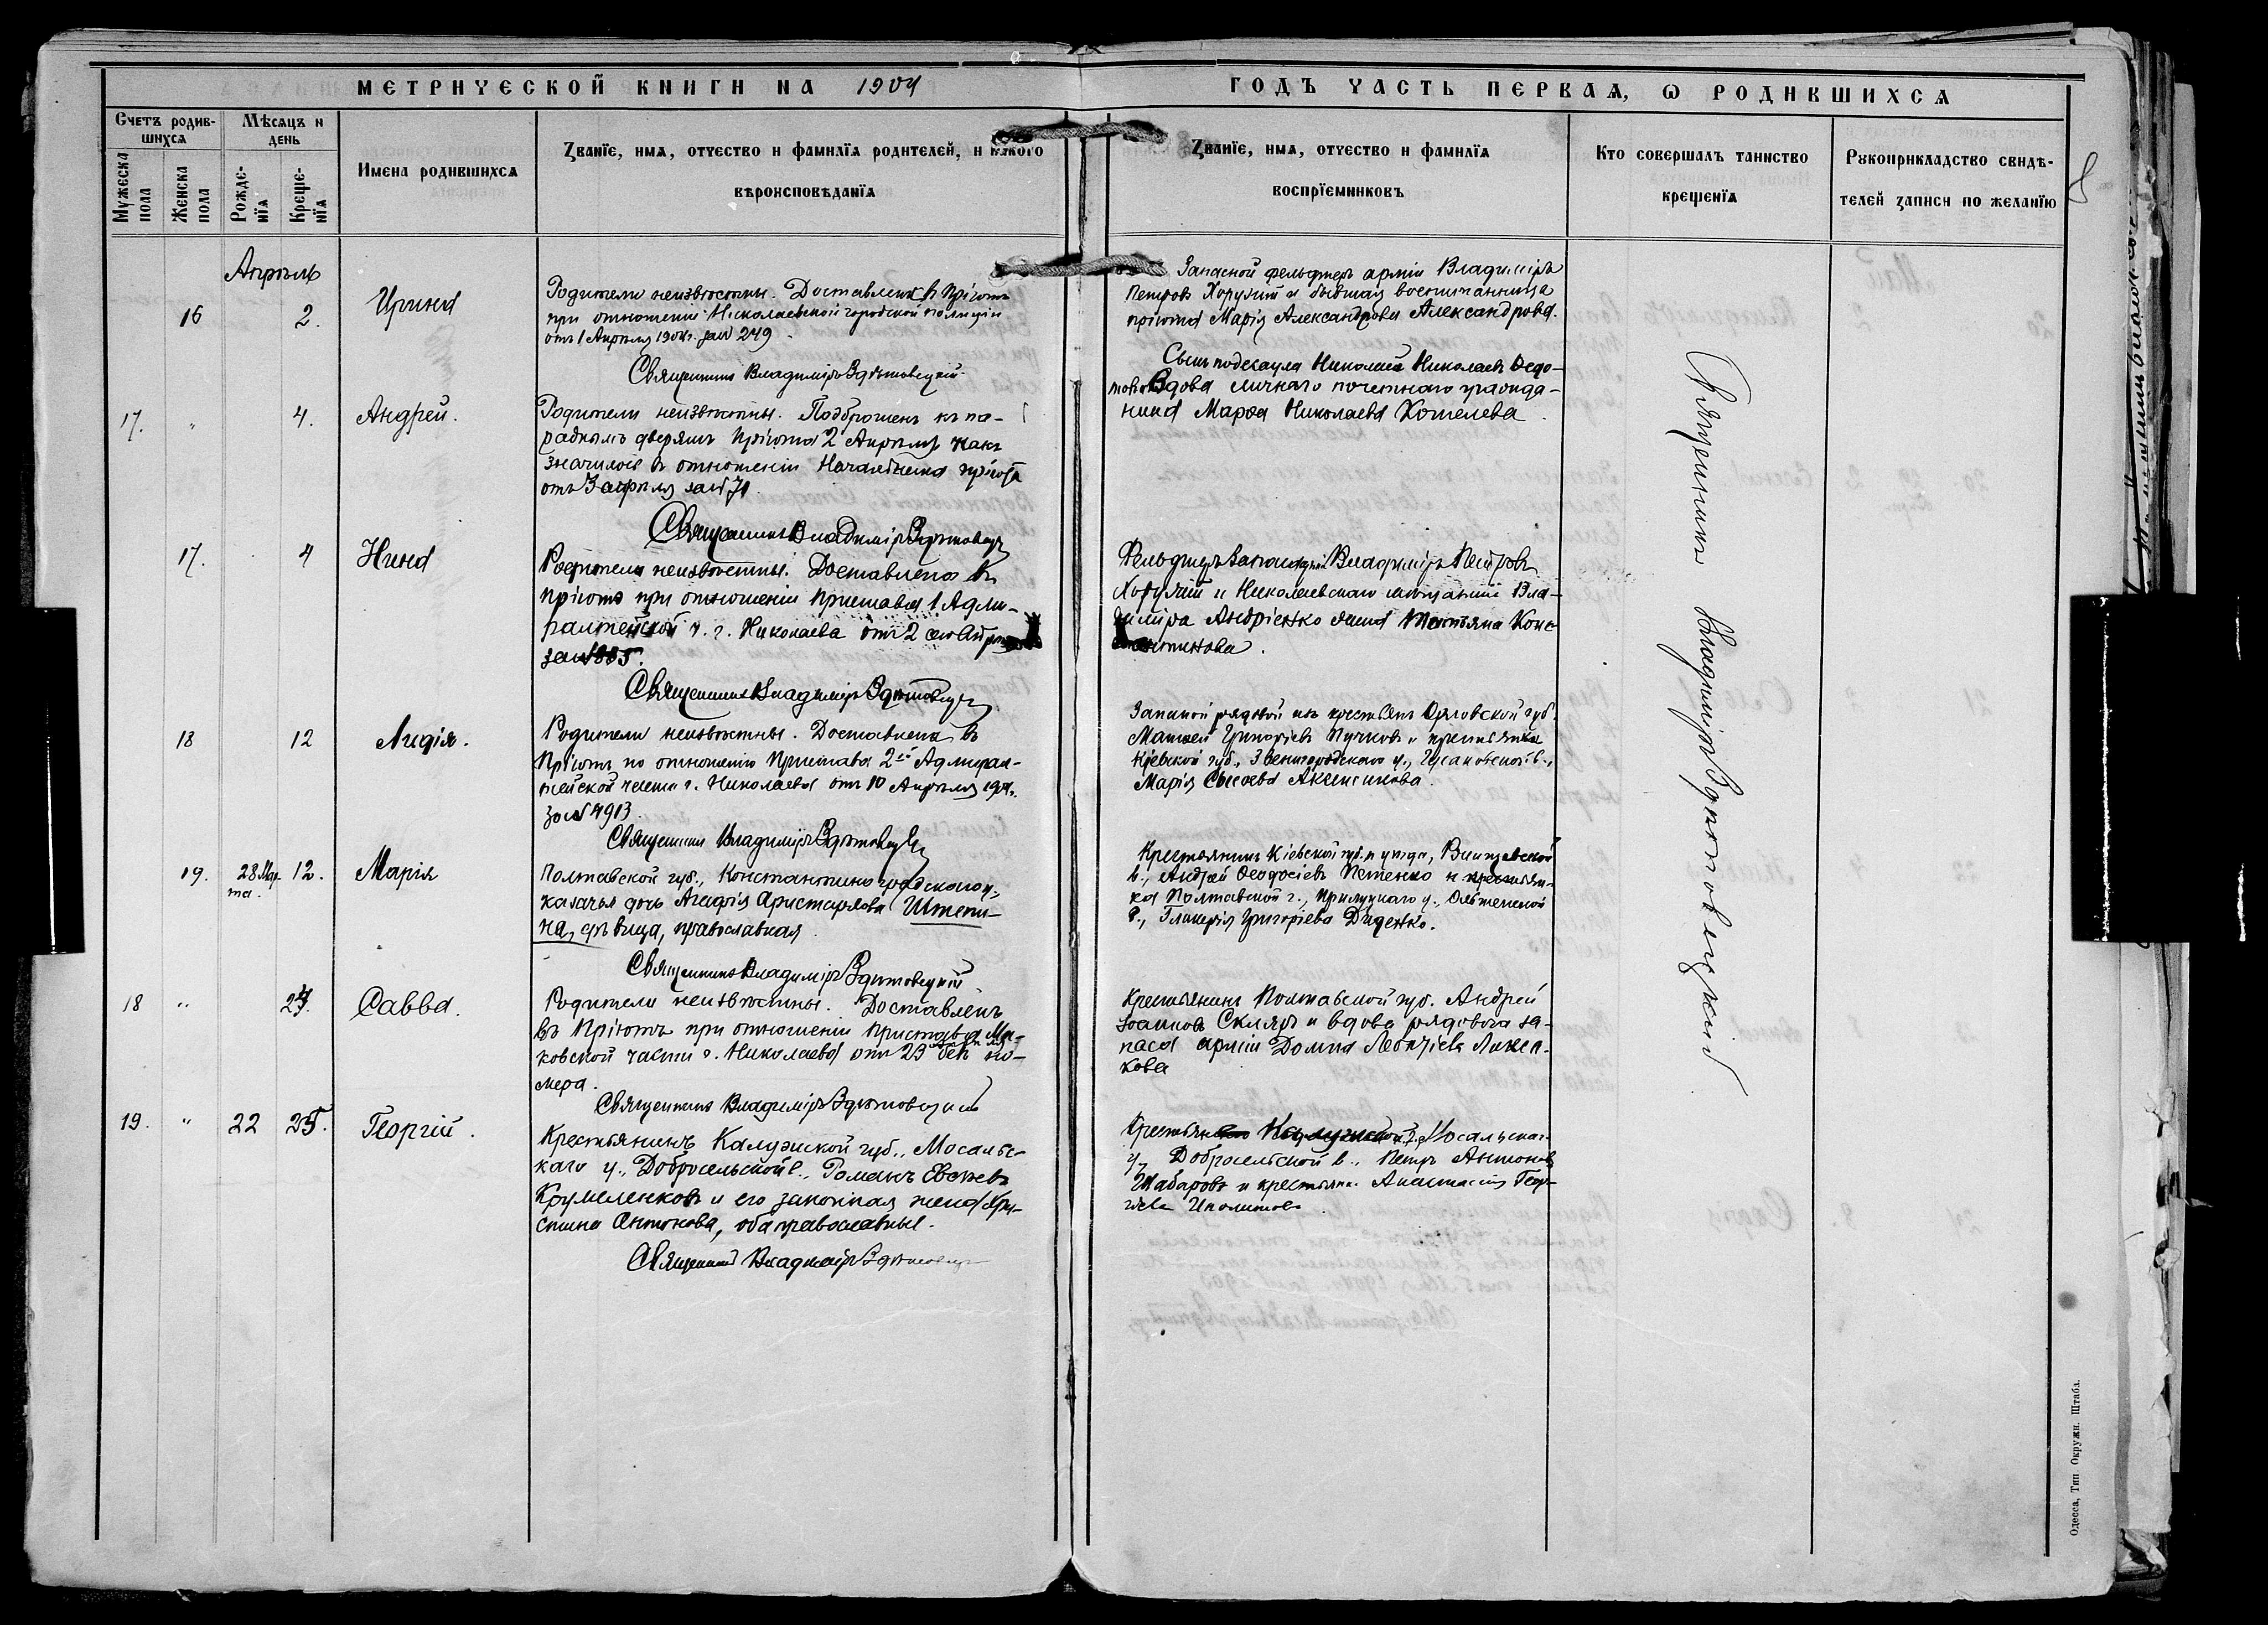 МЕТРИЧЕСКОЙ КНИГИ НА 1904
ГОДЪ ЧАСТЬ ПЕРВАЯ, Ѡ РОДИВШИХСЯ
Счетъ родив-
шихся
Мужеска
пола
Женска
пола
Мѣсяцъ и
день
Рожде-
нїя
Креще-
нїя
Имена родившихся
Званїе, имя, отчество и фамилїя родителей, и какого
вѣроисповѣданїя
Званїе, имя, отчество и фамилїя
воспрїемниковъ
Кто совершалъ таинство
крещенїя
Рукоприкладство свидѣ-
телей записи по желанїю
Апрѣль
16
2.
Ирина
Родители неизвѣстны. Доставлена в Пріютъ
при отношеніи Николаевской городской полиціи
отъ 1 Апрѣля 1904 г. за № 249
Священникъ Владиміръ Здѣтовецкій
Запасной фельдшеръ арміи Владиміръ
Петровъ Хоружій и бывшая воспитанница
пріюта Марія Александрова Александрова.
17. "
4.
Андрей.
Родители неизвѣстны. Подброшенъ къ па-
раднымъ дверямъ Пріюта 2 Апрѣля какъ
значилось в отношеніи Начальника пріюта
отъ 3 апрѣля за № 71
Священникъ Владиміръ Здѣтовецкій
Сынъ подесаула Николай Николаевъ Ѳедо-
товъ Вдова личнаго почетнаго гражда-
нина Марѳа Николаева Котелева
17.
4
Нина
Родители неизвѣстны. Доставлена въ
пріютъ при отношеніи Пристава 1 Адми-
ралтейской ч. г. Николаева отъ 2 сего Апрѣля
за № 885.
Священникъ Владиміръ Здѣтовецкій
Фельдшеръ запасный Владиміръ Петровъ
Хоружій и Николаевскаго мѣщанина Вла-
диміра Андріенко жена Татьяна Конс-
тантинова.
18
12
Лидія.
Родители неизвѣстны. Доставлена въ
Пріютъ по отношенію Пристава 2й Адмирал-
тейской части г. Николаева отъ 10 Апрѣля 1904 г.
за № 4913
Священникъ Владиміръ Здѣтовецкій
Запасной рядовой изъ крестьянъ Орловской губ.
Матвей Григоріевъ Пучковъ и крестьянка
Кіевской губ., Звенигородскаго у., в.,
Марія Сысоева Аксентикова.
19.
28 Мар-
та.
12.
Марія
Полтавской губ., Константиноградскаго у.
казачья дочь Агафія Аристархова Штепи-
на, дѣвица, православная.
Священникъ Владиміръ Здѣтовецкій
Крестьянинъ Кіевской губ. и уѣзда,
в., Андрей Ѳеодосіевъ Петенко и крестьян-
ка Полтавской г., Прилуцкаго у.,
в., Гликерія Григоріева Диденко.
18 "
24.
Савва.
Родители неизвѣстны. Доставленъ
въ Пріютъ при отношеніи Пристава Мос-
ковской части г. Николаева отъ 23 Апрѣля безъ но-
мера.
Священникъ Владиміръ Здѣтовецкій
Крестьянинъ Полтавской губ. Андрей
Іоанновъ Скляръ и вдова рядового за-
паса арміи Домна Леонтіева
19. "
22
25.
Георгій.
Крестьянинъ Калужской губ., Мосальс-
каго у., Добросельской в., Романъ
Крумеленковъ и его законная жена Хри-
стина Антонова, оба православные.
Священникъ Владиміръ Здѣтовецкій
Крестьянинъ Калужской г., Мосальскаго
у., Добросельской в., Петръ Антоновъ
Шабаровъ и крестьянка Анастасія Геор-
гіева Иполитова
Священникъ Владиміръ Здѣтовецкій
Одесса, Тип Окружн. Штаба.